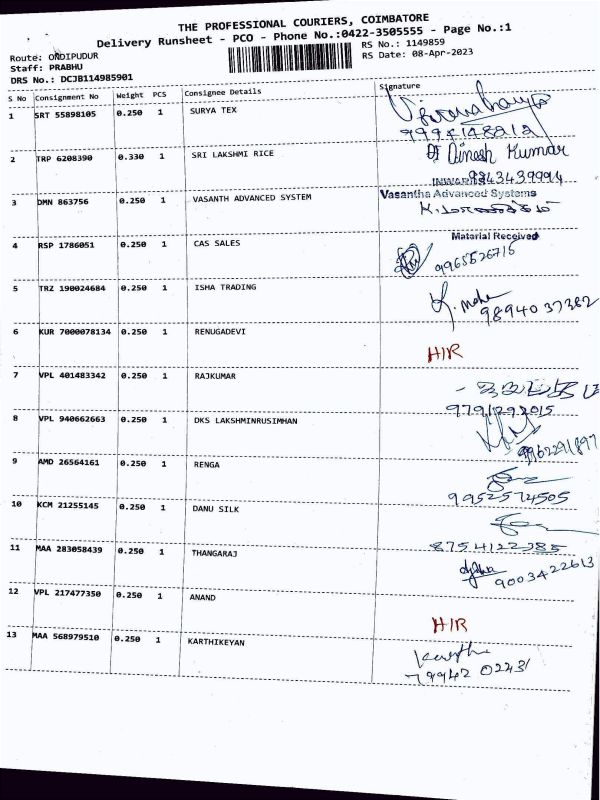 THE PROFESSIONAL COURIERS, COIMBATORE
Delivery Runsheet - PCO - Phone No.:0422-3505555 - Page No.:1
Route: ONDIPUDUR
RS No.: 1149859
Staff: PRABHU
RS Date: 08-Apr-2023
DRS No.: DCJB114985901
S No Consignment No Weight PCS Consignee Details Signature
1 SRT 55898105 0.250 1 SURYA TEX
2 TRP 6208390 0.330 1 SRI LAKSHMI RICE Dinesh Kumar
9843439994
3 DMN 863756 0.250 1 VASANTHA ADVANCED SYSTEM Vasantha Advanced Systems
Matarial Received
4 RSP 1786051 0.250 1 CAS SALES 9965526715
5 TRZ 190024684 0.250 1 ISHA TRADING
9894037382
6 KUR 7000078134 0.250 1 RENUGADEVI HIR
7 VPL 401483342 0.250 1 RAJKUMAR
9791292015
8 VPL 940662663 0.250 1 DKS LAKSHMINRUSIMHAN
9962291897
9 AMD 26564161 0.250 1 RENGA
9952574505
10 KCM 21255145 0.250 1 DANU SILK
8754122385
11 MAA 283058439 0.250 1 THANGARAJ 9003422613
12 VPL 217477350 0.250 1 ANAND HIR
13 MAA 568979510 0.250 1 KARTHIKEYAN
79942 02231